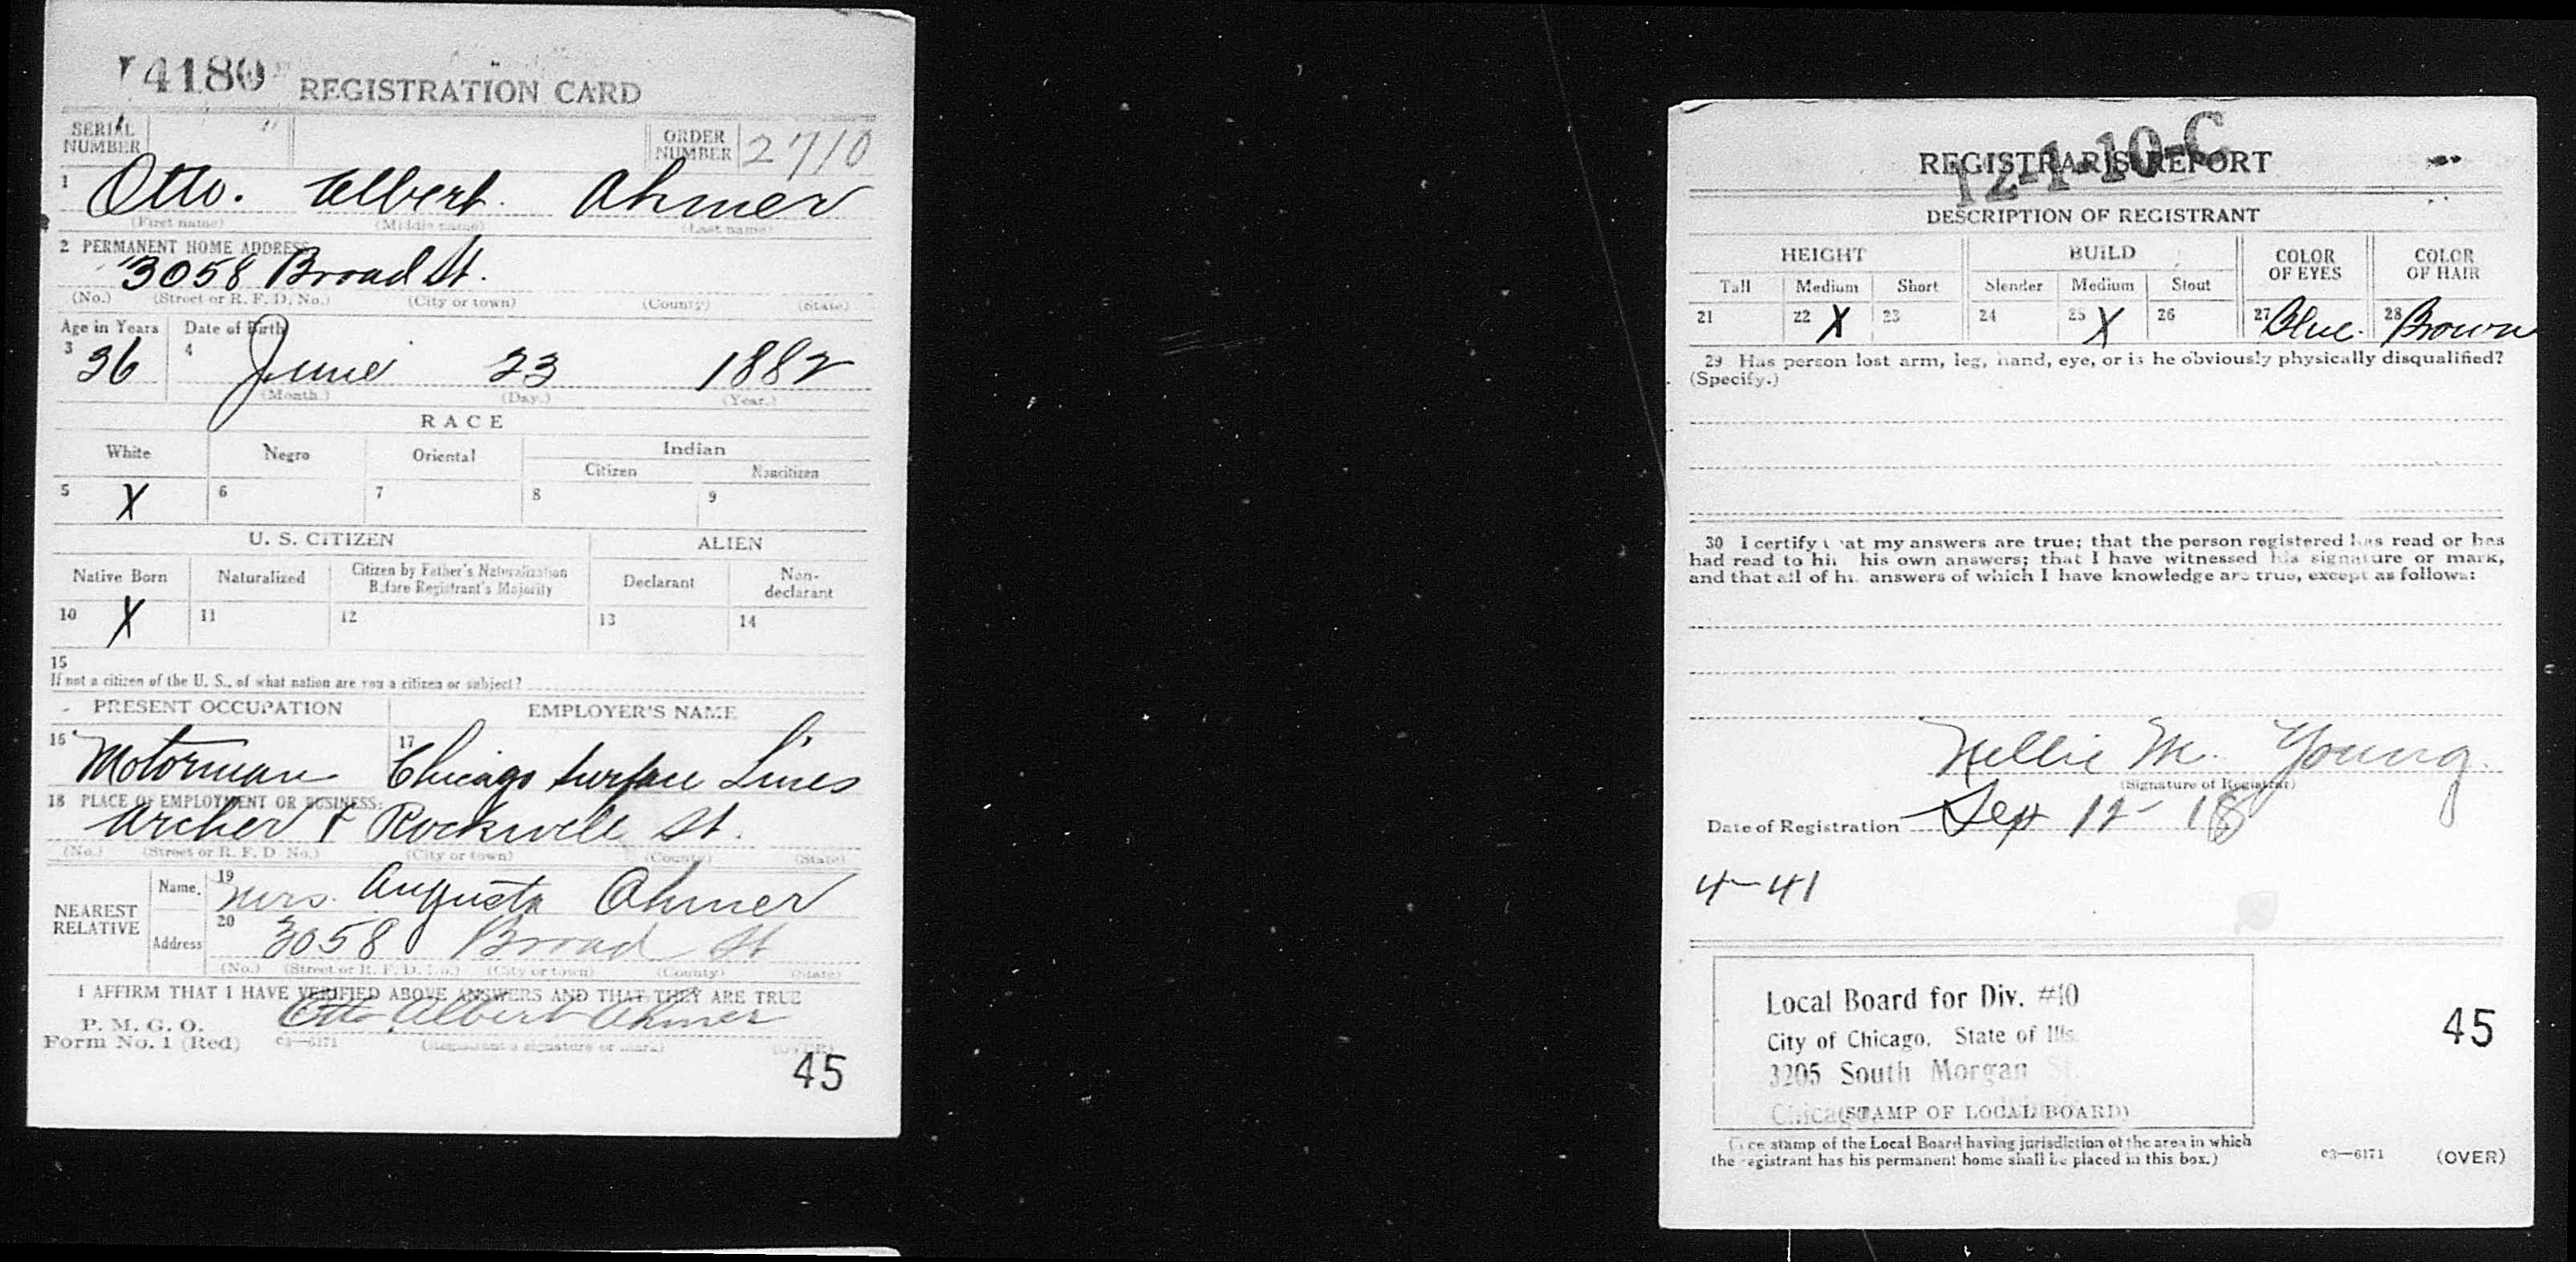 4180 REGISTRATION CARD
SERIAL NUMBER ORDER NUMBER 2710
1 Otto. Albert. Ahmer
(First name) (Middle name) (Last name)
2 PERMANENT HOME ADDRESS
3058 Broad St.
(No.) (Street or R. F. D. No.) (City or town) (County) (State)
Age in Years Date of Birth
3 36 4 June 23 1882
(Month.) (Day.) (Year.)
RACE
White Negro Oriental Indian
Citizen Noncitizen
5 X 6 7 8 9
U. S. CITIZEN ALIEN
Native Born Naturalized Citizen by Father's Naturalization Before Registrant's Majority Declarant Non-declarant
10 X 11 12 13 14
15
If not a citizen of the U. S., of what nation are you a citizen or subject?
PRESENT OCCUPATION EMPLOYER'S NAME
16 Motorman 17 Chicago Surface Lines
18 PLACE OF EMPLOYMENT OR BUSINESS:
Archer & Rockwell St.
(No.) (Street or R. F. D. No.) (City or town) (County) (State)
NEAREST RELATIVE Name. 19 Mrs. Augusta Ahmer
Address 20 3058 Broad St
(No.) (Street or R. F. D. No.) (City or town) (County) (State)
I AFFIRM THAT I HAVE VERIFIED ABOVE ANSWERS AND THAT THEY ARE TRUE
P. M. G. O.
Form No. 1 (Red) Otto Albert Ahmer
03—6171 (Registrant's signature or mark) (OVER)
45
12-1-10-C
REGISTRAR'S REPORT
DESCRIPTION OF REGISTRANT
HEIGHT BUILD COLOR OF EYES COLOR OF HAIR
Tall Medium Short Slender Medium Stout
21 22 X 23 24 25 X 26 27 Blue. 28 Brown
29 Has person lost arm, leg, hand, eye, or is he obviously physically disqualified?
(Specify.)
30 I certify that my answers are true; that the person registered has read or has
had read to him his own answers; that I have witnessed his signature or mark,
and that all of his answers of which I have knowledge are true, except as follows:
Nellie M. Young.
(Signature of Registrar)
Date of Registration Sep 12 - 18
4-41
Local Board for Div. #10
City of Chicago, State of Ills.
3205 South Morgan St.
Chicago
(STAMP OF LOCAL BOARD)
45
(The stamp of the Local Board having jurisdiction of the area in which
the registrant has his permanent home shall be placed in this box.)
03—6171 (OVER)